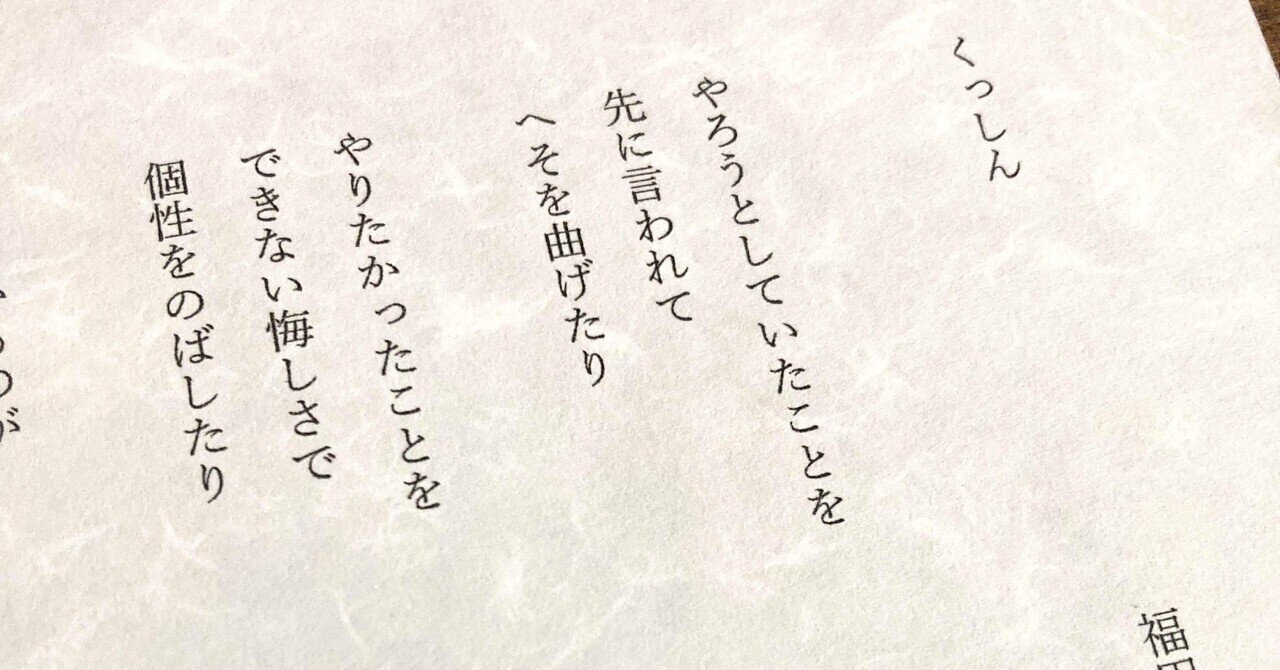 福
くっしん
やろうとしていたことを
先に言われて
へそを曲げたり
やりたかったことを
できない悔しさで
個性をのばしたり